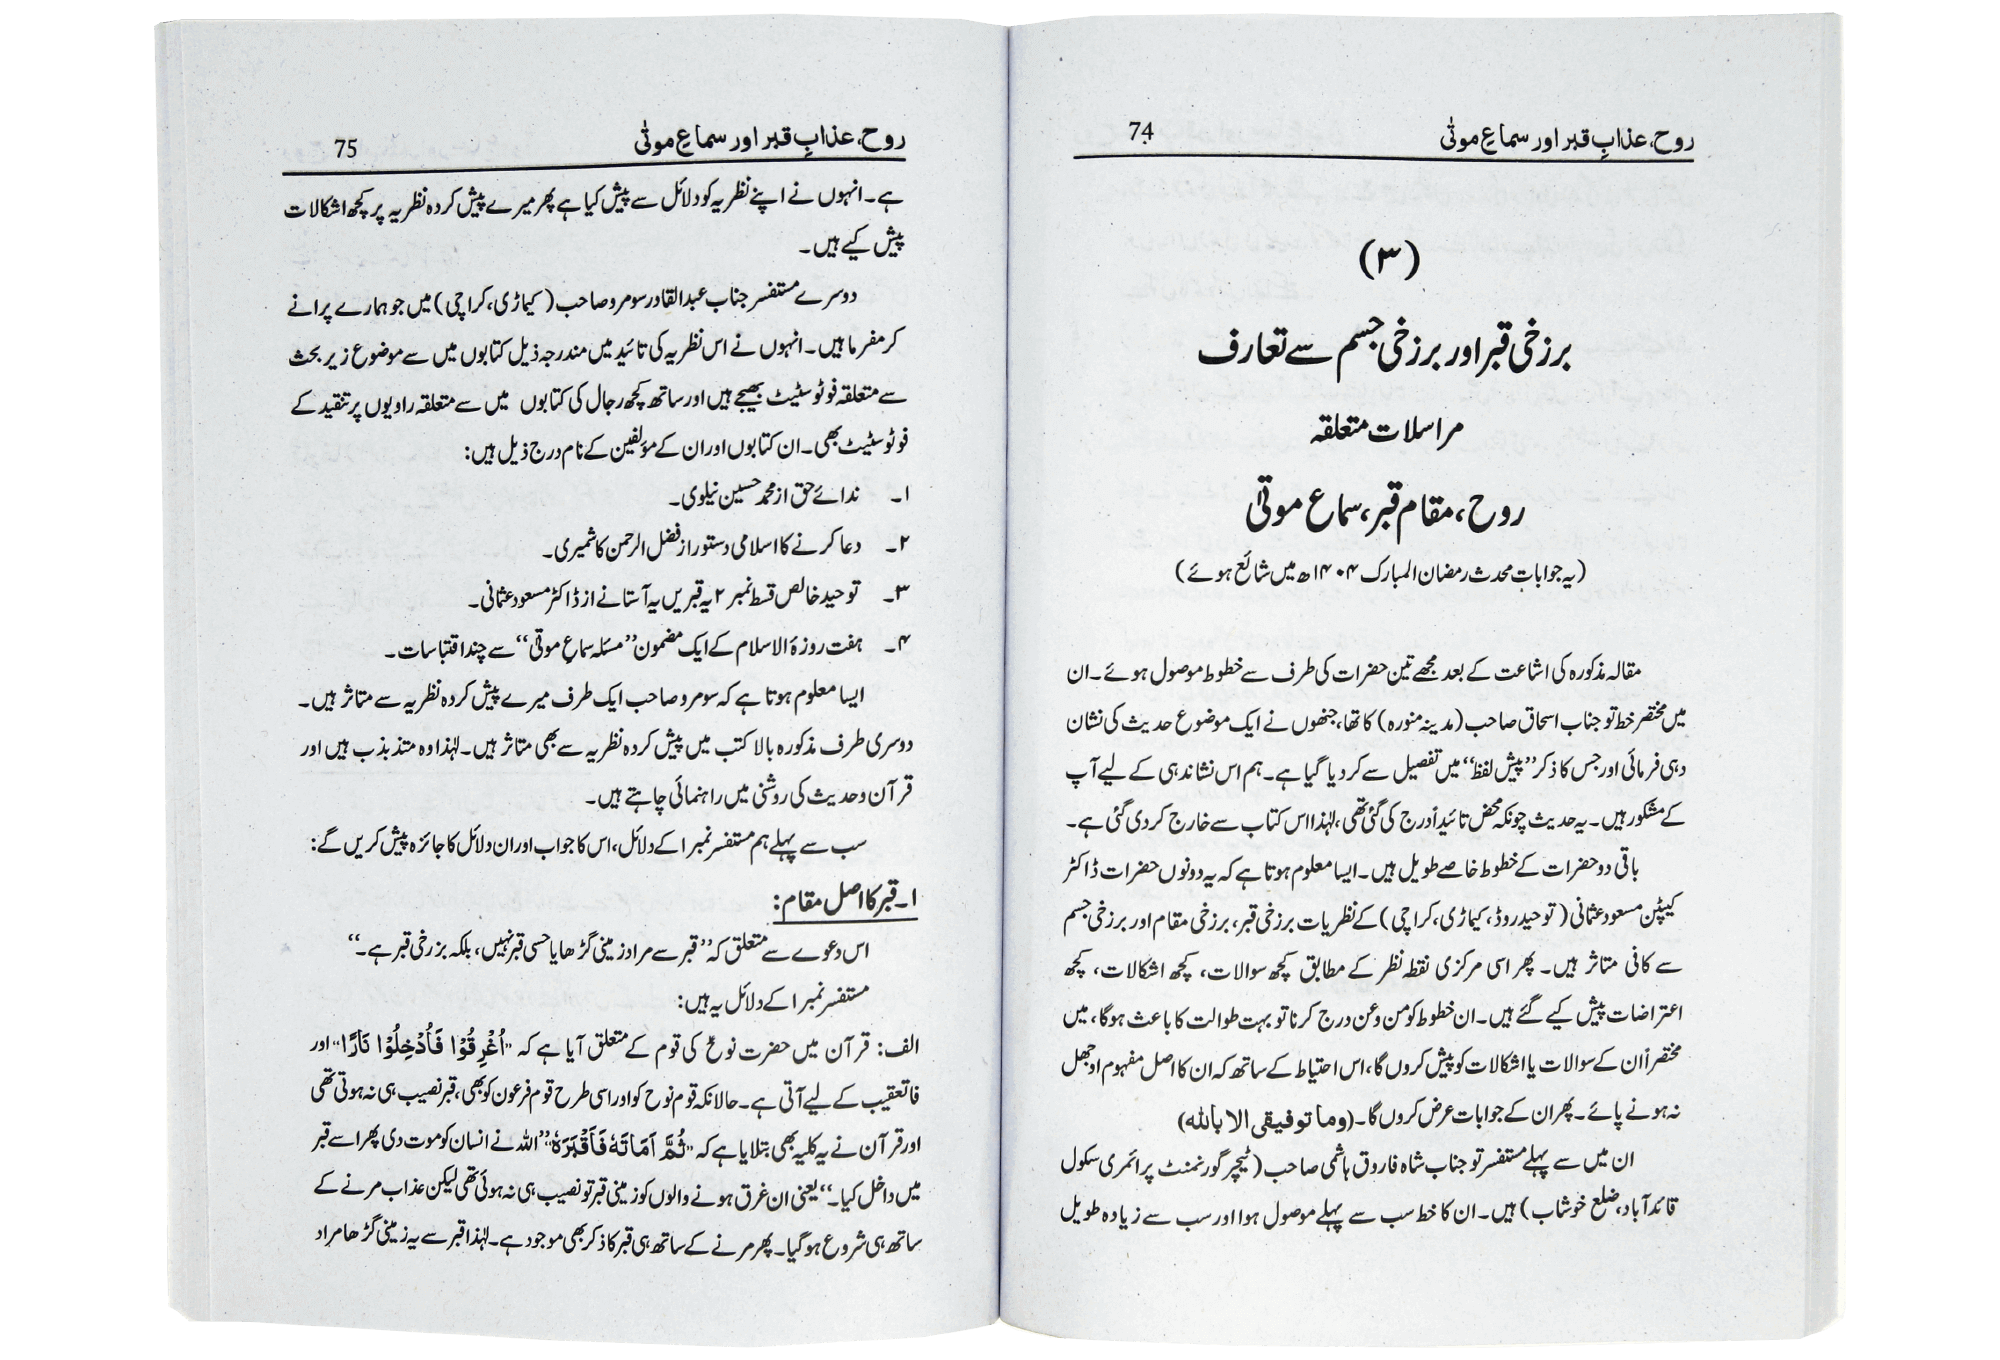 روح، عذابِ قبر اور سماعِ موتٰی 74
(۳)
برزخی قبر اور برزخی جسم سے تعارف
مراسلات متعلقہ
روح، مقام قبر، سماع موتیٰ
(یہ جوابات محدث رمضان المبارک ۱۴۰۴ھ میں شائع ہوئے)
مقالہ مذکورہ کی اشاعت کے بعد مجھے تین حضرات کی طرف سے خطوط موصول ہوئے۔ ان
میں مختصر خط تو جناب اسحاق صاحب (مدینہ منورہ) کا تھا، جنھوں نے ایک موضوع حدیث کی نشان
دہی فرمائی اور جس کا ذکر ”پیش لفظ“ میں تفصیل سے کر دیا گیا ہے۔ ہم اس نشاندہی کے لیے آپ
کے مشکور ہیں۔ یہ حدیث چونکہ محض تائیداً درج کی گئی تھی، لہٰذا اس کتاب سے خارج کر دی گئی ہے۔
باقی دو حضرات کے خطوط خاصے طویل ہیں۔ ایسا معلوم ہوتا ہے کہ یہ دونوں حضرات ڈاکٹر
کیپٹن مسعود عثمانی (توحید روڈ، کیماڑی، کراچی) کے نظریات برزخی قبر، برزخی مقام اور برزخی جسم
سے کافی متاثر ہیں۔ پھر اسی مرکزی نقطہ نظر کے مطابق کچھ سوالات، کچھ اشکالات، کچھ
اعتراضات پیش کیے گئے ہیں۔ ان خطوط کو من وعن درج کرنا تو بہت طوالت کا باعث ہوگا، میں
مختصراً ان کے سوالات یا اشکالات کو پیش کروں گا، اس احتیاط کے ساتھ کہ ان کا اصل مفہوم اوجھل
نہ ہونے پائے۔ پھر ان کے جوابات عرض کروں گا۔ (وما توفیقی الا باللہ)
ان میں سے پہلے مستفسر تو جناب شاہ فاروق ہاشمی صاحب (ٹیچر گورنمنٹ پرائمری سکول
قائد آباد، ضلع خوشاب) ہیں۔ ان کا خط سب سے پہلے موصول ہوا اور سب سے زیادہ طویل
روح، عذابِ قبر اور سماعِ موتٰی 75
ہے۔ انہوں نے اپنے نظریہ کو دلائل سے پیش کیا ہے پھر میرے پیش کردہ نظریہ پر کچھ اشکالات
پیش کیے ہیں۔
دوسرے مستفسر جناب عبدالقادر سومرو صاحب (کیماڑی، کراچی) میں جو ہمارے پرانے
کرمفرما ہیں۔ انہوں نے اس نظریہ کی تائید میں مندرجہ ذیل کتابوں میں سے موضوع زیر بحث
سے متعلقہ فوٹوسٹیٹ بھیجے ہیں اور ساتھ کچھ رجال کی کتابوں میں سے متعلقہ راویوں پر تنقید کے
فوٹوسٹیٹ بھی۔ ان کتابوں اور ان کے مؤلفین کے نام درج ذیل ہیں:
۱۔ ندائے حق از محمد حسین نیلوی۔
۲۔ دعا کرنے کا اسلامی دستور از فضل الرحمن کاشمیری۔
۳۔ توحید خالص قسط نمبر ۲ یہ قبریں یہ آستانے از ڈاکٹر مسعود عثمانی۔
۴۔ ہفت روزۃ الاسلام کے ایک مضمون ”مسئلہ سماعِ موتی“ سے چند اقتباسات۔
ایسا معلوم ہوتا ہے کہ سومرو صاحب ایک طرف میرے پیش کردہ نظریہ سے متاثر ہیں۔
دوسری طرف مذکورہ بالا کتب میں پیش کردہ نظریہ سے بھی متاثر ہیں۔ لہٰذا وہ متذبذب ہیں اور
قرآن وحدیث کی روشنی میں راہنمائی چاہتے ہیں۔
سب سے پہلے ہم مستفسر نمبر ۱ کے دلائل، اس کا جواب اور ان دلائل کا جائزہ پیش کریں گے:
۱۔ قبر کا اصل مقام:
اس دعوے سے متعلق کہ ”قبر سے مراد زمینی گڑھا یا حسی قبر نہیں، بلکہ بزرخی قبر ہے۔“
مستفسر نمبر ۱ کے دلائل یہ ہیں:
الف: قرآن میں حضرت نوحؑ کی قوم کے متعلق آیا ہے کہ ”اُغْرِقُوْا فَاُدْخِلُوْا نَارًا“ اور
فا تعقیب کے لیے آتی ہے۔ حالانکہ قوم نوح کو اور اسی طرح قوم فرعون کو بھی، قبر نصیب ہی نہ ہوتی تھی
اور قرآن نے یہ کلیہ بھی بتلایا ہے کہ ”ثُمَّ اَمَاتَهٗ فَاَقْبَرَهٗ“ ”اللہ نے انسان کو موت دی پھر اسے قبر
میں داخل کیا۔“ یعنی ان غرق ہونے والوں کو زمینی قبر تو نصیب ہی نہ ہوئی تھی لیکن عذاب مرنے کے
ساتھ ہی شروع ہو گیا۔ پھر مرنے کے ساتھ ہی قبر کا ذکر بھی موجود ہے۔ لہٰذا قبر سے یہ زمینی گڑھا مراد